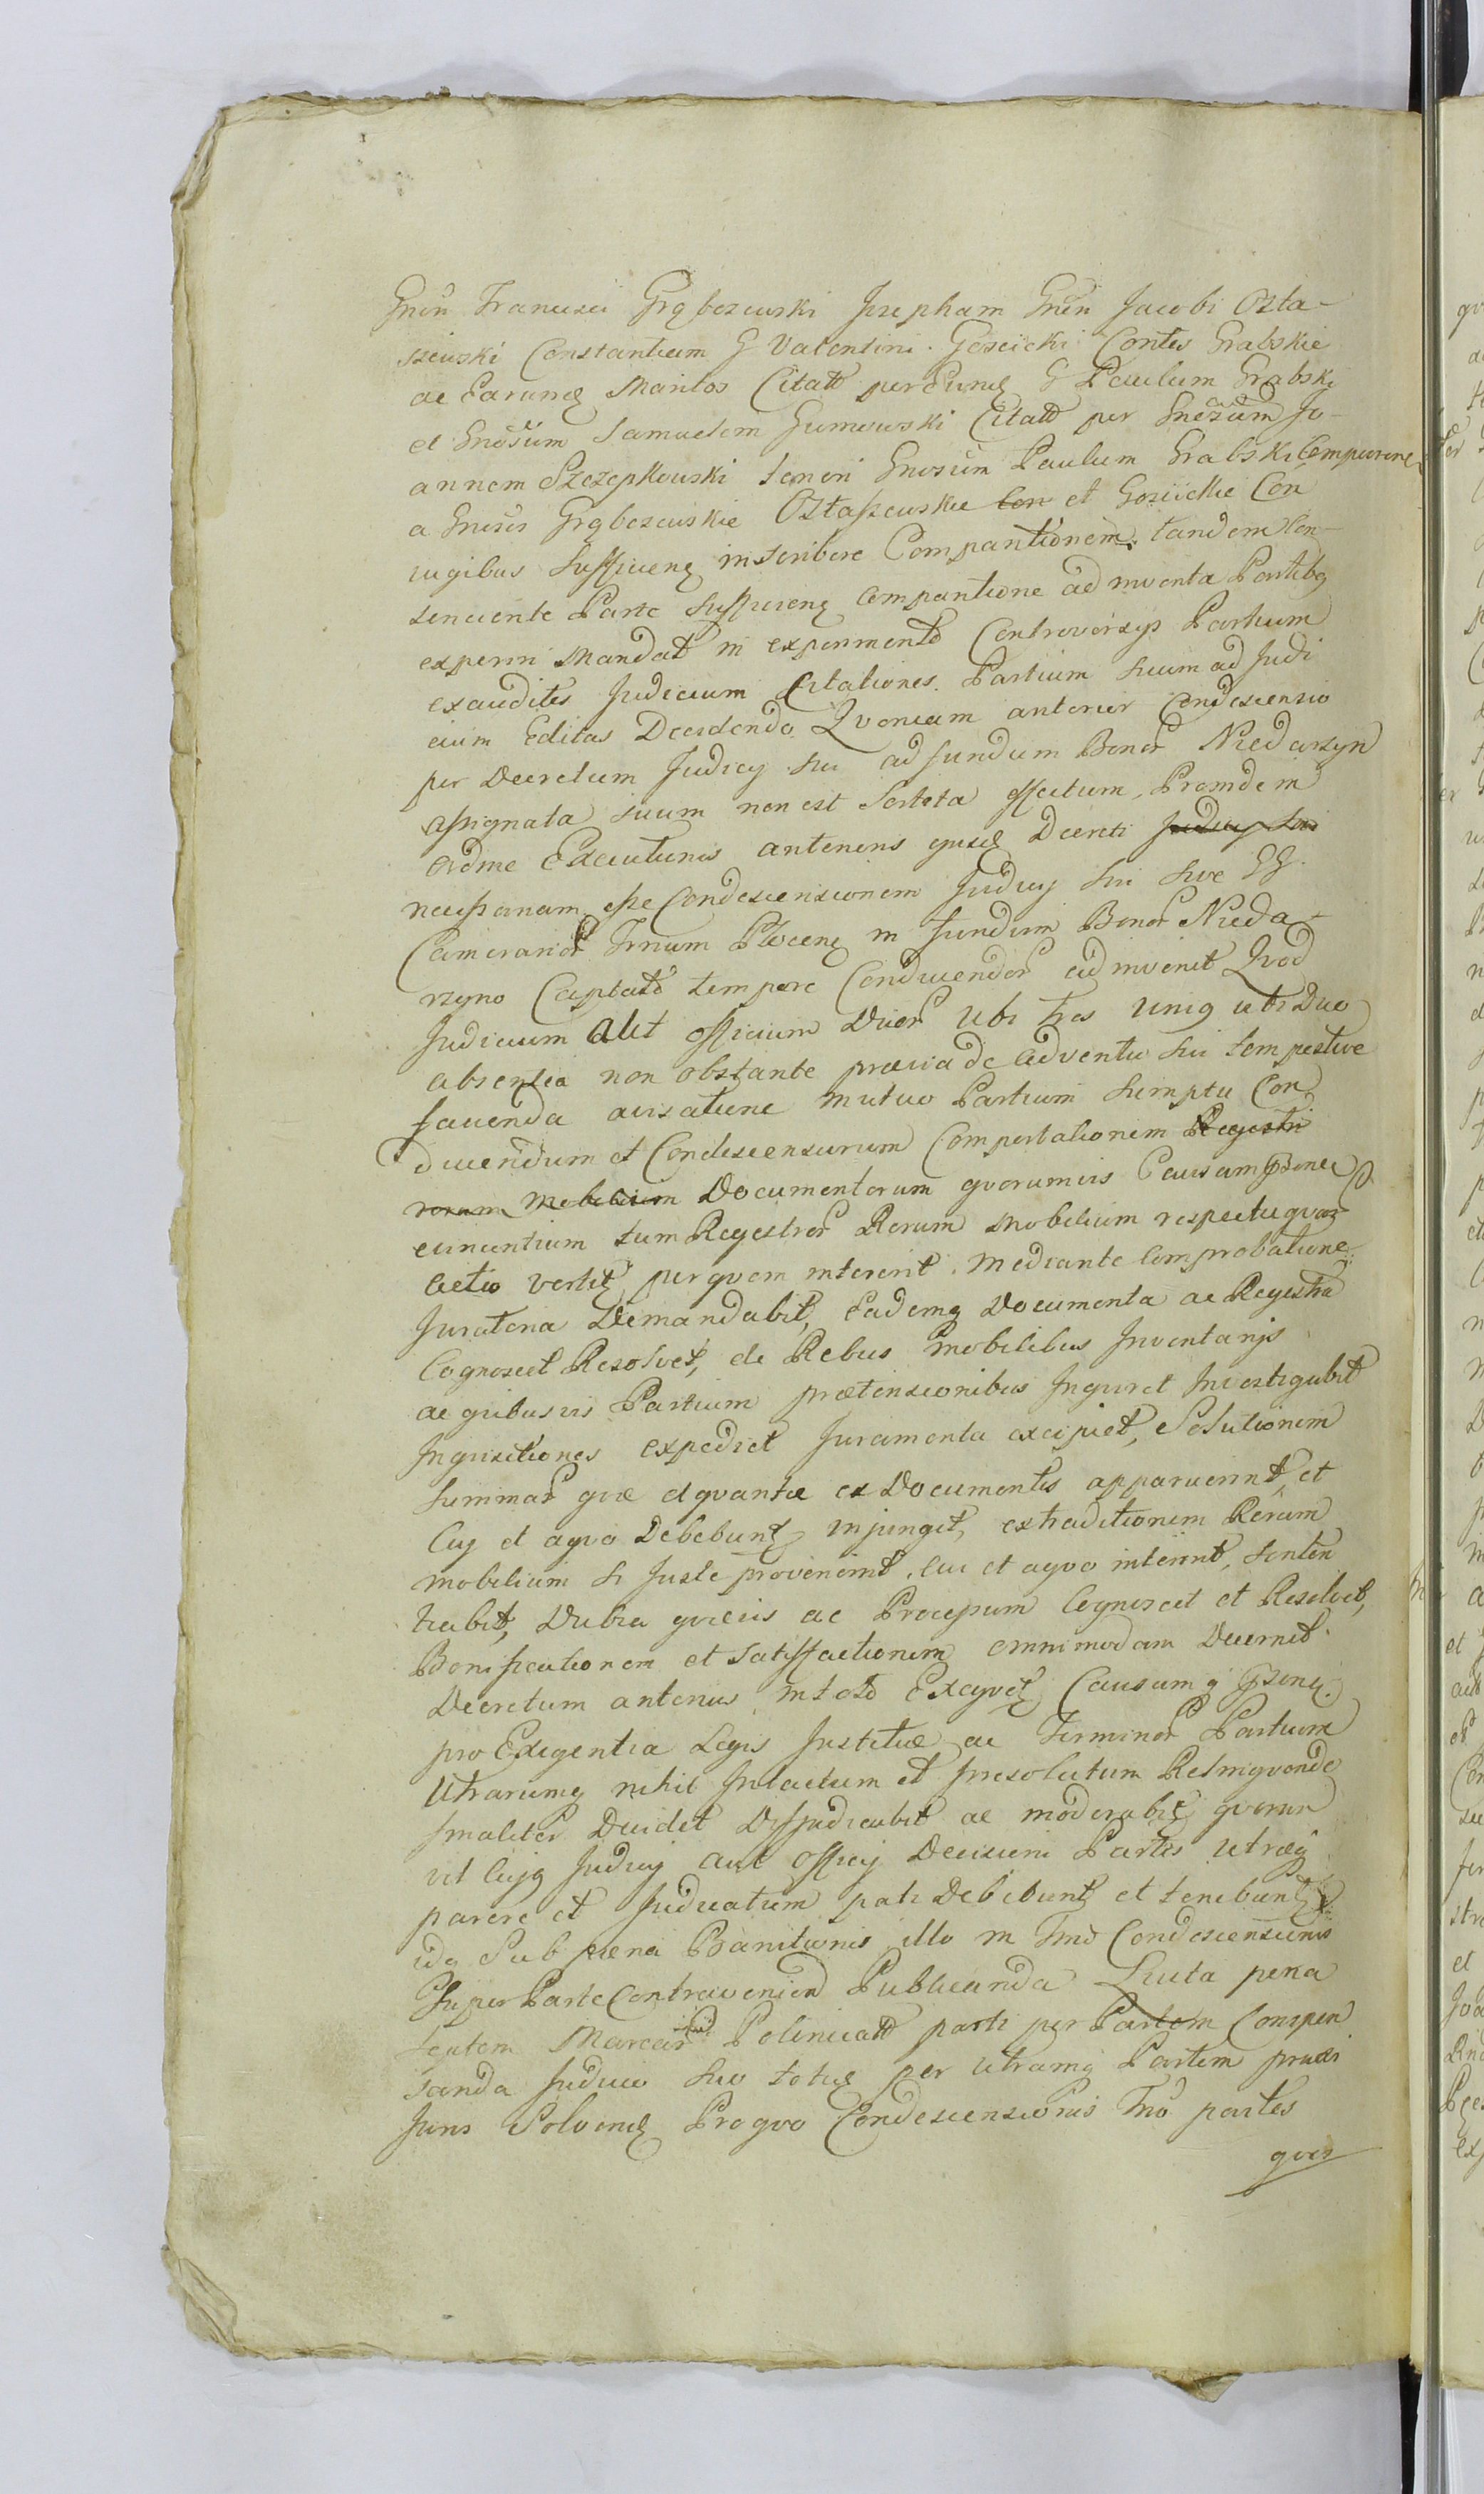 Gnen Francisci Grąbczewski Josepham Gnen Jacobi Osta-
szewski Constantiam G Valentini Gościcki Contes Grabskie
ac Earumq Maritos Citatt per Eund G Paulum Grabski
et Gnosum Samuelem Gumowski Citatt per Gnosum Jo-
annem Szczepkowski teneri Gnosum Paulum Grabski Comparene
a Gnosis Grąbczewskie Ostaszewskie Con et Gosiickie Con
iugibus Sufficienq inscribere Comparitionem, tandem Con-
senciente Parte Sufficienq comparitione adinventa Partibq
experiri Mandat in experimento Controversys Partium
exauditis Judicium Citationes Partium suum ad Judi
cium Editas Decidendo Qvoniam anterior Condescensio
per Decretum Judicy sui ad fundum Bonor Niedarzyn
assignata suum non est Sortita effectum, Proinde in
ordine Executionis anterioris ejusd Decreti Judicy Sui
necessariam esse Condescensionem Judicy sui sive GG
Camerarior Trrum Plocenq in fundum Bonor Nieda-
rzyno Captato tempore Conducendor adinvenit Qvod
Judicium aut officium Duor Ubi tres uniq ubi Duo
absentia non obstante praevia de adventu sui tempestive
facienda avisatione mutuo Partium sumptu Con
ducendum et Condescensurum Comportationem Registri
rerum Mobilium Documentorum qvorumvis Causam Psone
concinentium tum Registror Rerum Mobilium respectu qvor
actio vertit per qvem intererit. Mediante Comprobatione
Juratoria Demandabit, Eademq Documenta ac Registra
Cognoscet Resolvet, de Rebus mobilibus Inventarys
ac quibusvis Partium praetensionibus Inquiret Investigabit
Inquisitiones expediet Juramenta excipiet, Solutionem
Summar qvae et qvantae ex Documentis apparuerint, et
Cuj et a qvo Debebunt injunget, extraditionem Rerum
mobilium si Juste provenerint, cui et a qvo interint, senten
tiabit, Dubia qvaevis ac Processum Cognoscet et Resolvet,
Bonificationem et Satisfactionem omnimodam Decernet
Decretum anterius in toto Exeqvet Causamq Psone
pro Exigentia Legis Justitiae ac Terminor Partium
Utrarumq nihil Intactum et Irresolutum Relinqvendo
finaliter Decidet Dijudicabit ac moderabit qvorum
vel Cujq Judicy aut officy Decisioni Partes utraeq
parere et Judicatum pati Debebunt et tenebunt
idq Sub poena Bannitionis illo in Tmo Condescensionis
super Parte Contravenien Publicanda Luita pena
Centem Marcar Polonicalt parti per Partem Compen
sanda Judicio suo totie per utramq Partem praevi
Juris Solvend Pro qvo Condescensionis Tmo partes
qvas